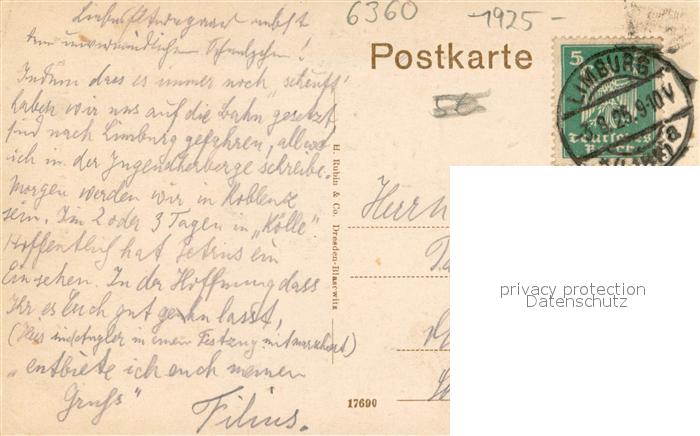 6360 -1925-
Postkarte
5
LIMBURG
9-10 V
Deutsches
Reich
Indem dass es immer noch „schifft"
haben wir uns auf die Bahn gesetzt
sind nach Limburg gefahren, allwo
ich in der Jugendherberge schreibe.
Morgen werden wir in Koblenz
sein. Im 2 oder 3 Tagen in „Kölle".
Hoffentlich hat Petrus ein
Einsehen. In der Hoffnung dass
Ihr es Euch gut gehn lasst,
in einem Festzug mitmarschiert)
„entbiete ich euch meinen
Gruß"
Filius.
H. Rubin & Co. Dresden-Blasewitz
17690
Herrn
privacy protection
Datenschutz